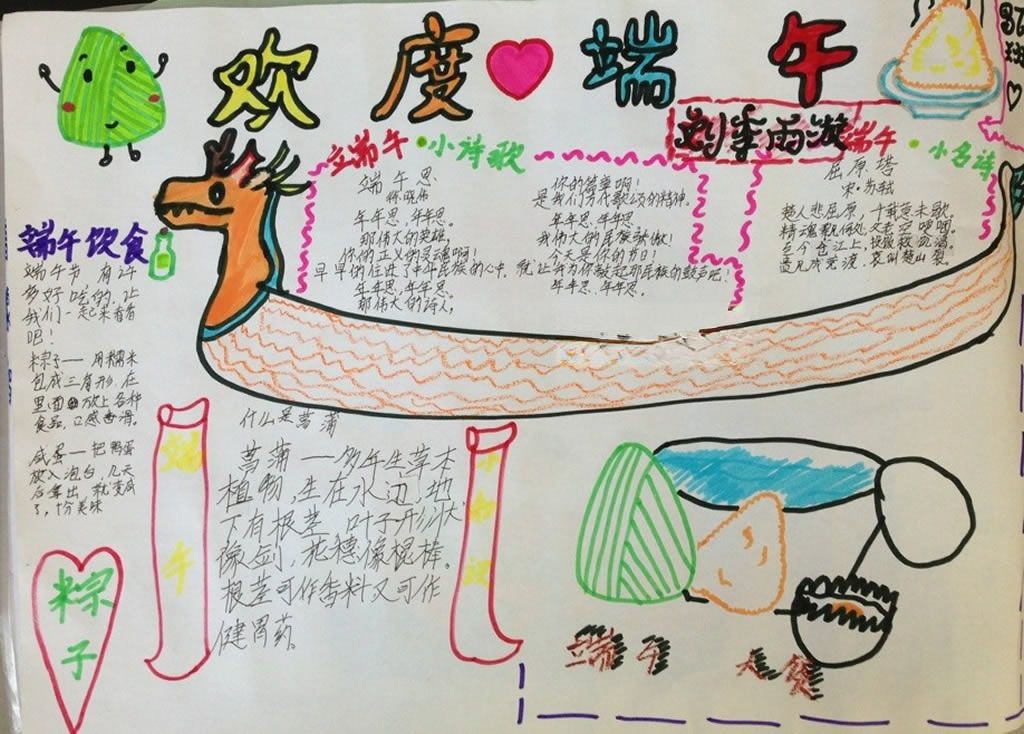 欢度端午
端午·小诗歌
端午思
年年思,年年思。
那伟大的英雄,
你的正义的灵魂啊!
早早的住进了中华民族的心中,
年年思,年年思。
那伟大的诗人,
你的简单啊!
是我们万代歌颂的精神。
年年思,年年思。
我伟大的民族骄傲!
今天是你的节日!
年年思,年年思。
端午·小名诗
屈原塔
宋·苏轼
楚人悲屈原,千载意未歇。
精魂飘何处,父老空哽咽。
至今仓江上,投饭救饥渴。
遗风成竞渡,哀叫楚山裂。
端午饮食
端午节,有许
多好吃的,让
我们一起来看看
吧!
粽子——用糯米
包成三角形,在
里面放上各种
食品,口感香滑。
咸蛋——把鸭蛋
放入泡台,几天
后拿出,就变成
了,十分美味
粽子
端午
小知识
什么是菖蒲
菖蒲——多年生草本
植物,生在水边,地
下有根茎,叶子形状
像剑,花穗像棍棒。
根茎可作香料又可作
健胃药。
端午